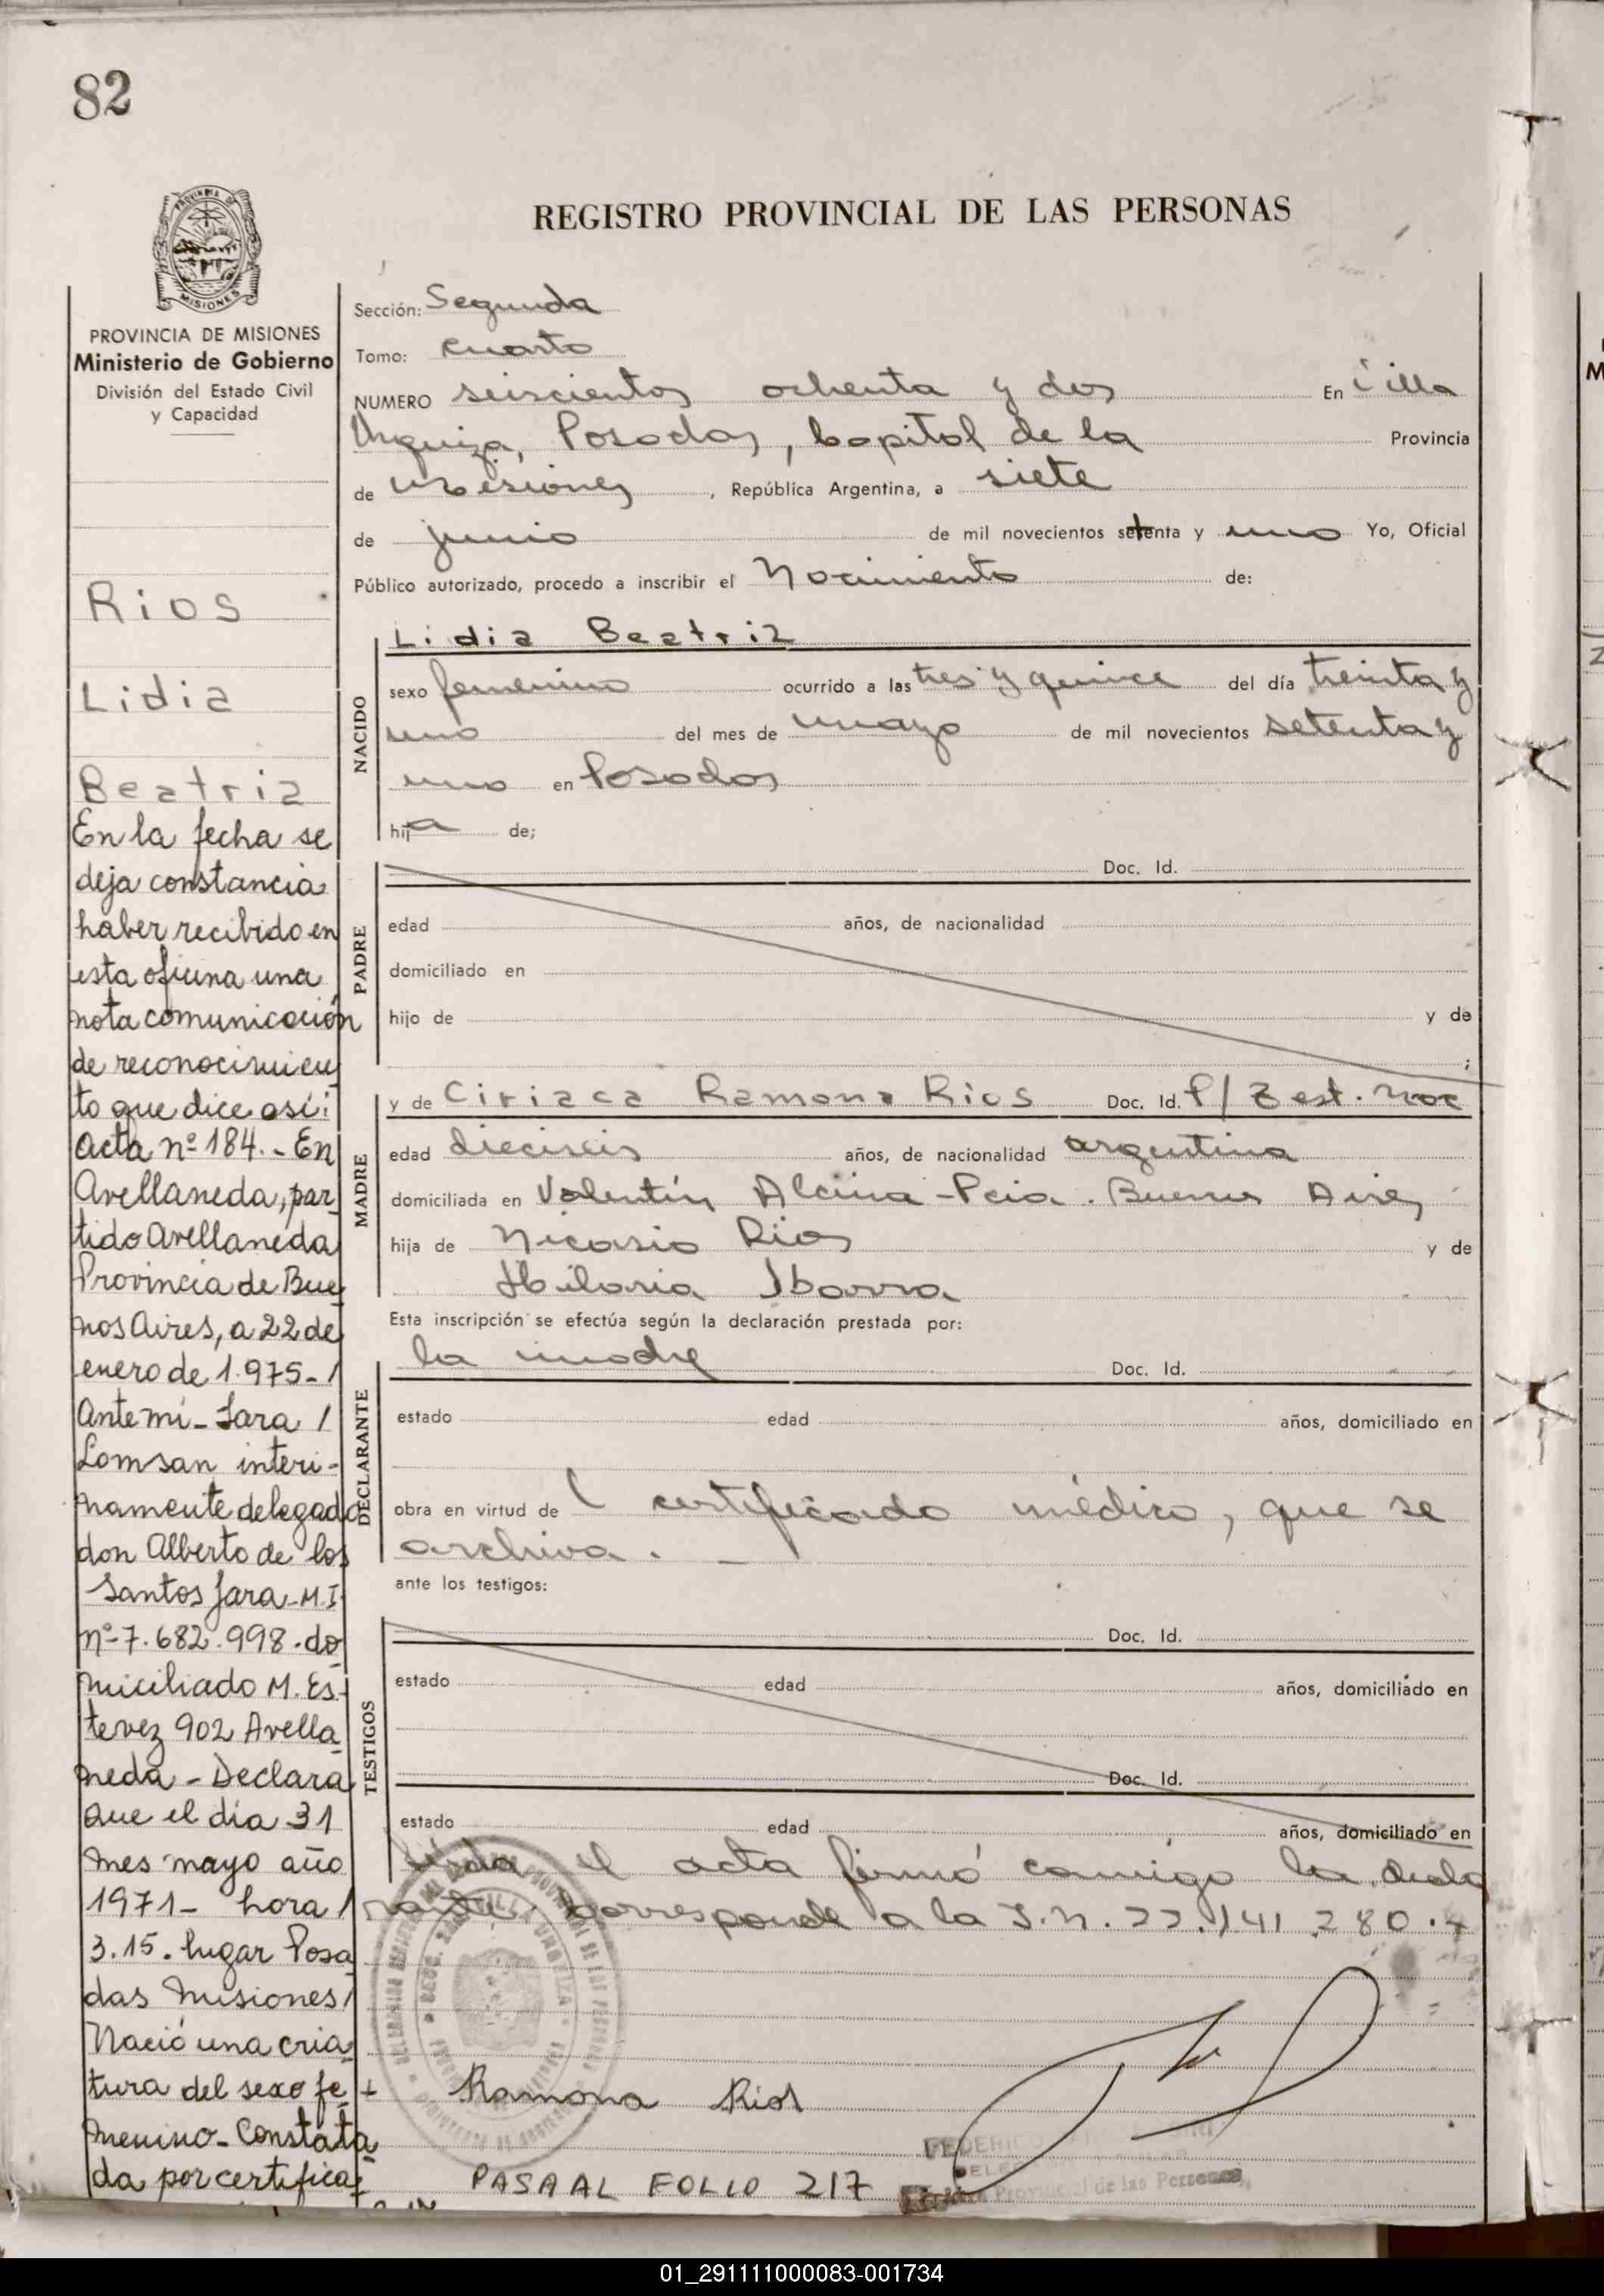 82
PROVINCIA DE MISIONES
Ministerio de Gobierno
División del Estado Civil
y Capacidad
Rios
Lidia
Beatriz
En la fecha se
deja constancia
haber recibido en
esta oficina una
nota comunicación
de reconocimien
to que dice así:
Acta nº 184.- En
Avellaneda, par
tido Avellaneda
Provincia de Bue
nos Aires, a 22 de
enero de 1.975-/
Ante mí- Sara /
Lomsan interi-
namente delegada
don Alberto de los
Santos Jara-M.I
nº-7.682.998.do
miciliado M. Es-
tevez 902 Avella
neda - Declara
que el día 31
mes mayo año
1971- hora /
3.15. lugar Posa
das Misiones/
Nació una cria
tura del sexo fe
menino- Constata
da por certifica
REGISTRO PROVINCIAL DE LAS PERSONAS
Sección: Segunda
Tomo: cuarto
NUMERO seiscientos ochenta y dos En Villa
Urquiza, Posadas, Capital de la Provincia
de Misiones, República Argentina, a siete
de junio de mil novecientos setenta y uno Yo, Oficial
Público autorizado, procedo a inscribir el Nacimiento de:
Lidia Beatriz
NACIDO
sexo femenino ocurrido a las tres y quince del día treinta y
uno del mes de mayo de mil novecientos setenta y
uno en Posadas
hija de;
PADRE
Doc. Id.
edad años, de nacionalidad
domiciliado en
hijo de y de
;
MADRE
y de Ciriaca Ramona Rios Doc. Id. P/
edad dieciseis años, de nacionalidad argentina
domiciliada en Valentín Alcina - Pcia. Buenos Aires
hija de Nicasio Rios y de
Hilaria Ibarra
Esta inscripción se efectúa según la declaración prestada por:
DECLARANTE
la madre Doc. Id.
estado edad años, domiciliado en
obra en virtud de certificado médico, que se
archiva. -
ante los testigos:
TESTIGOS
Doc. Id.
estado edad años, domiciliado en
Doc. Id.
estado edad años, domiciliado en
leída el acta firmó conmigo la decla
rante. corresponde a la I.N. 22.141.280.
Ramona Rios
PASA AL FOLIO 217
FEDERICO
Provincial de las Personas
01_291111000083-001734